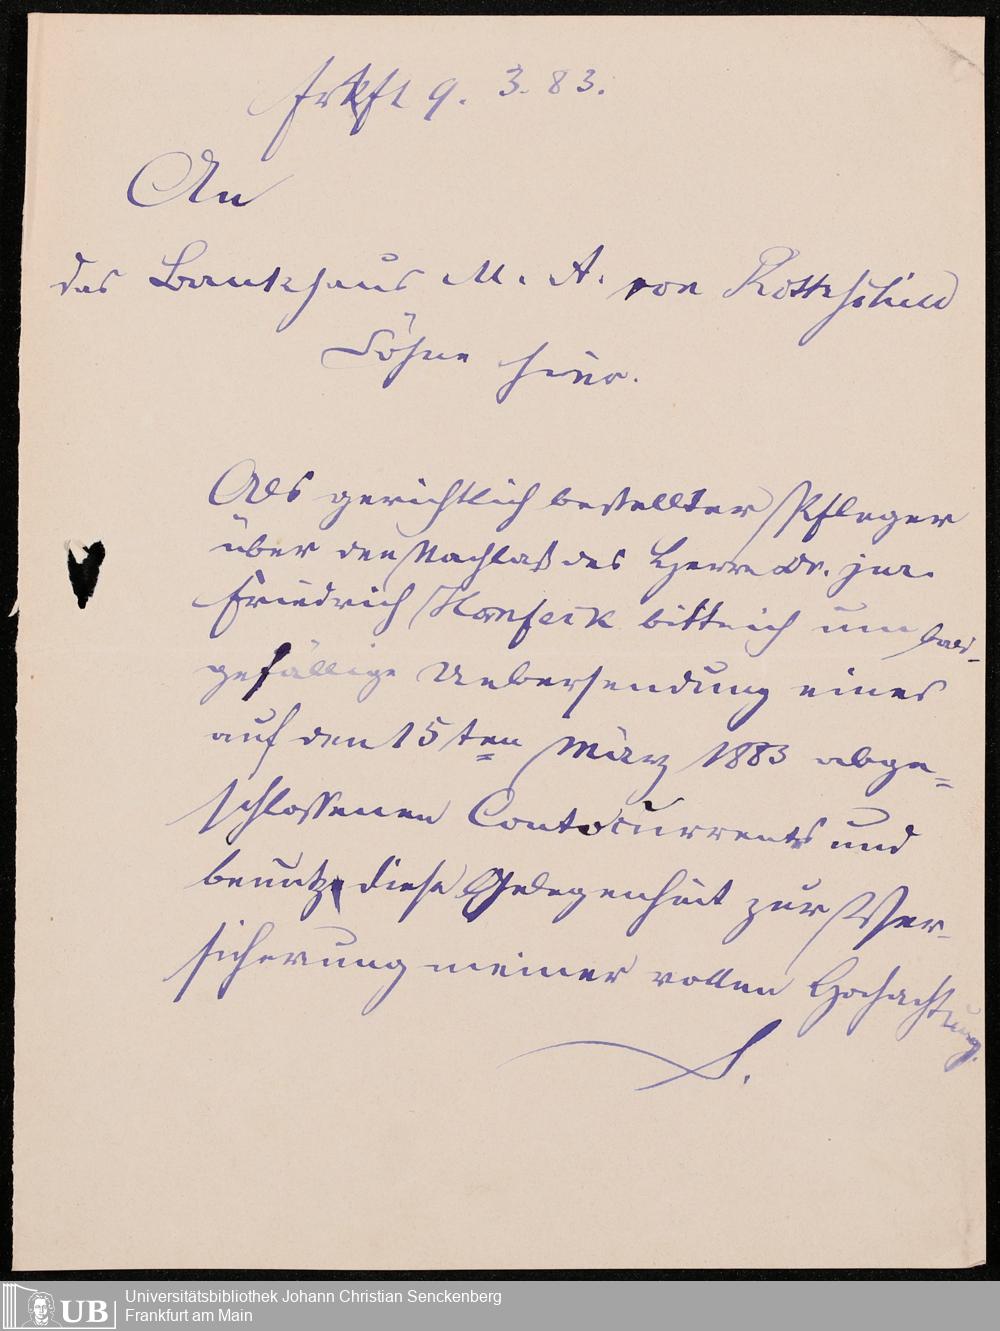 Frkft 9. 3. 83.
An
das Bankhaus M. A. von Rothschild
Söhne hier.
Als gerichtlich bestellter Pfleger
über den Nachlaß des Herrn Dr. jur.
Friedrich bitte ich um bald-
gefällige Uebersendung eines
auf den 15ten März 1883 abge=
schlossenen Contocurrents und
benutze diese Gelegenheit zur Ver-
sicherung meiner vollen Hochachtung.
S.
UB
Universitätsbibliothek Johann Christian Senckenberg
Frankfurt am Main